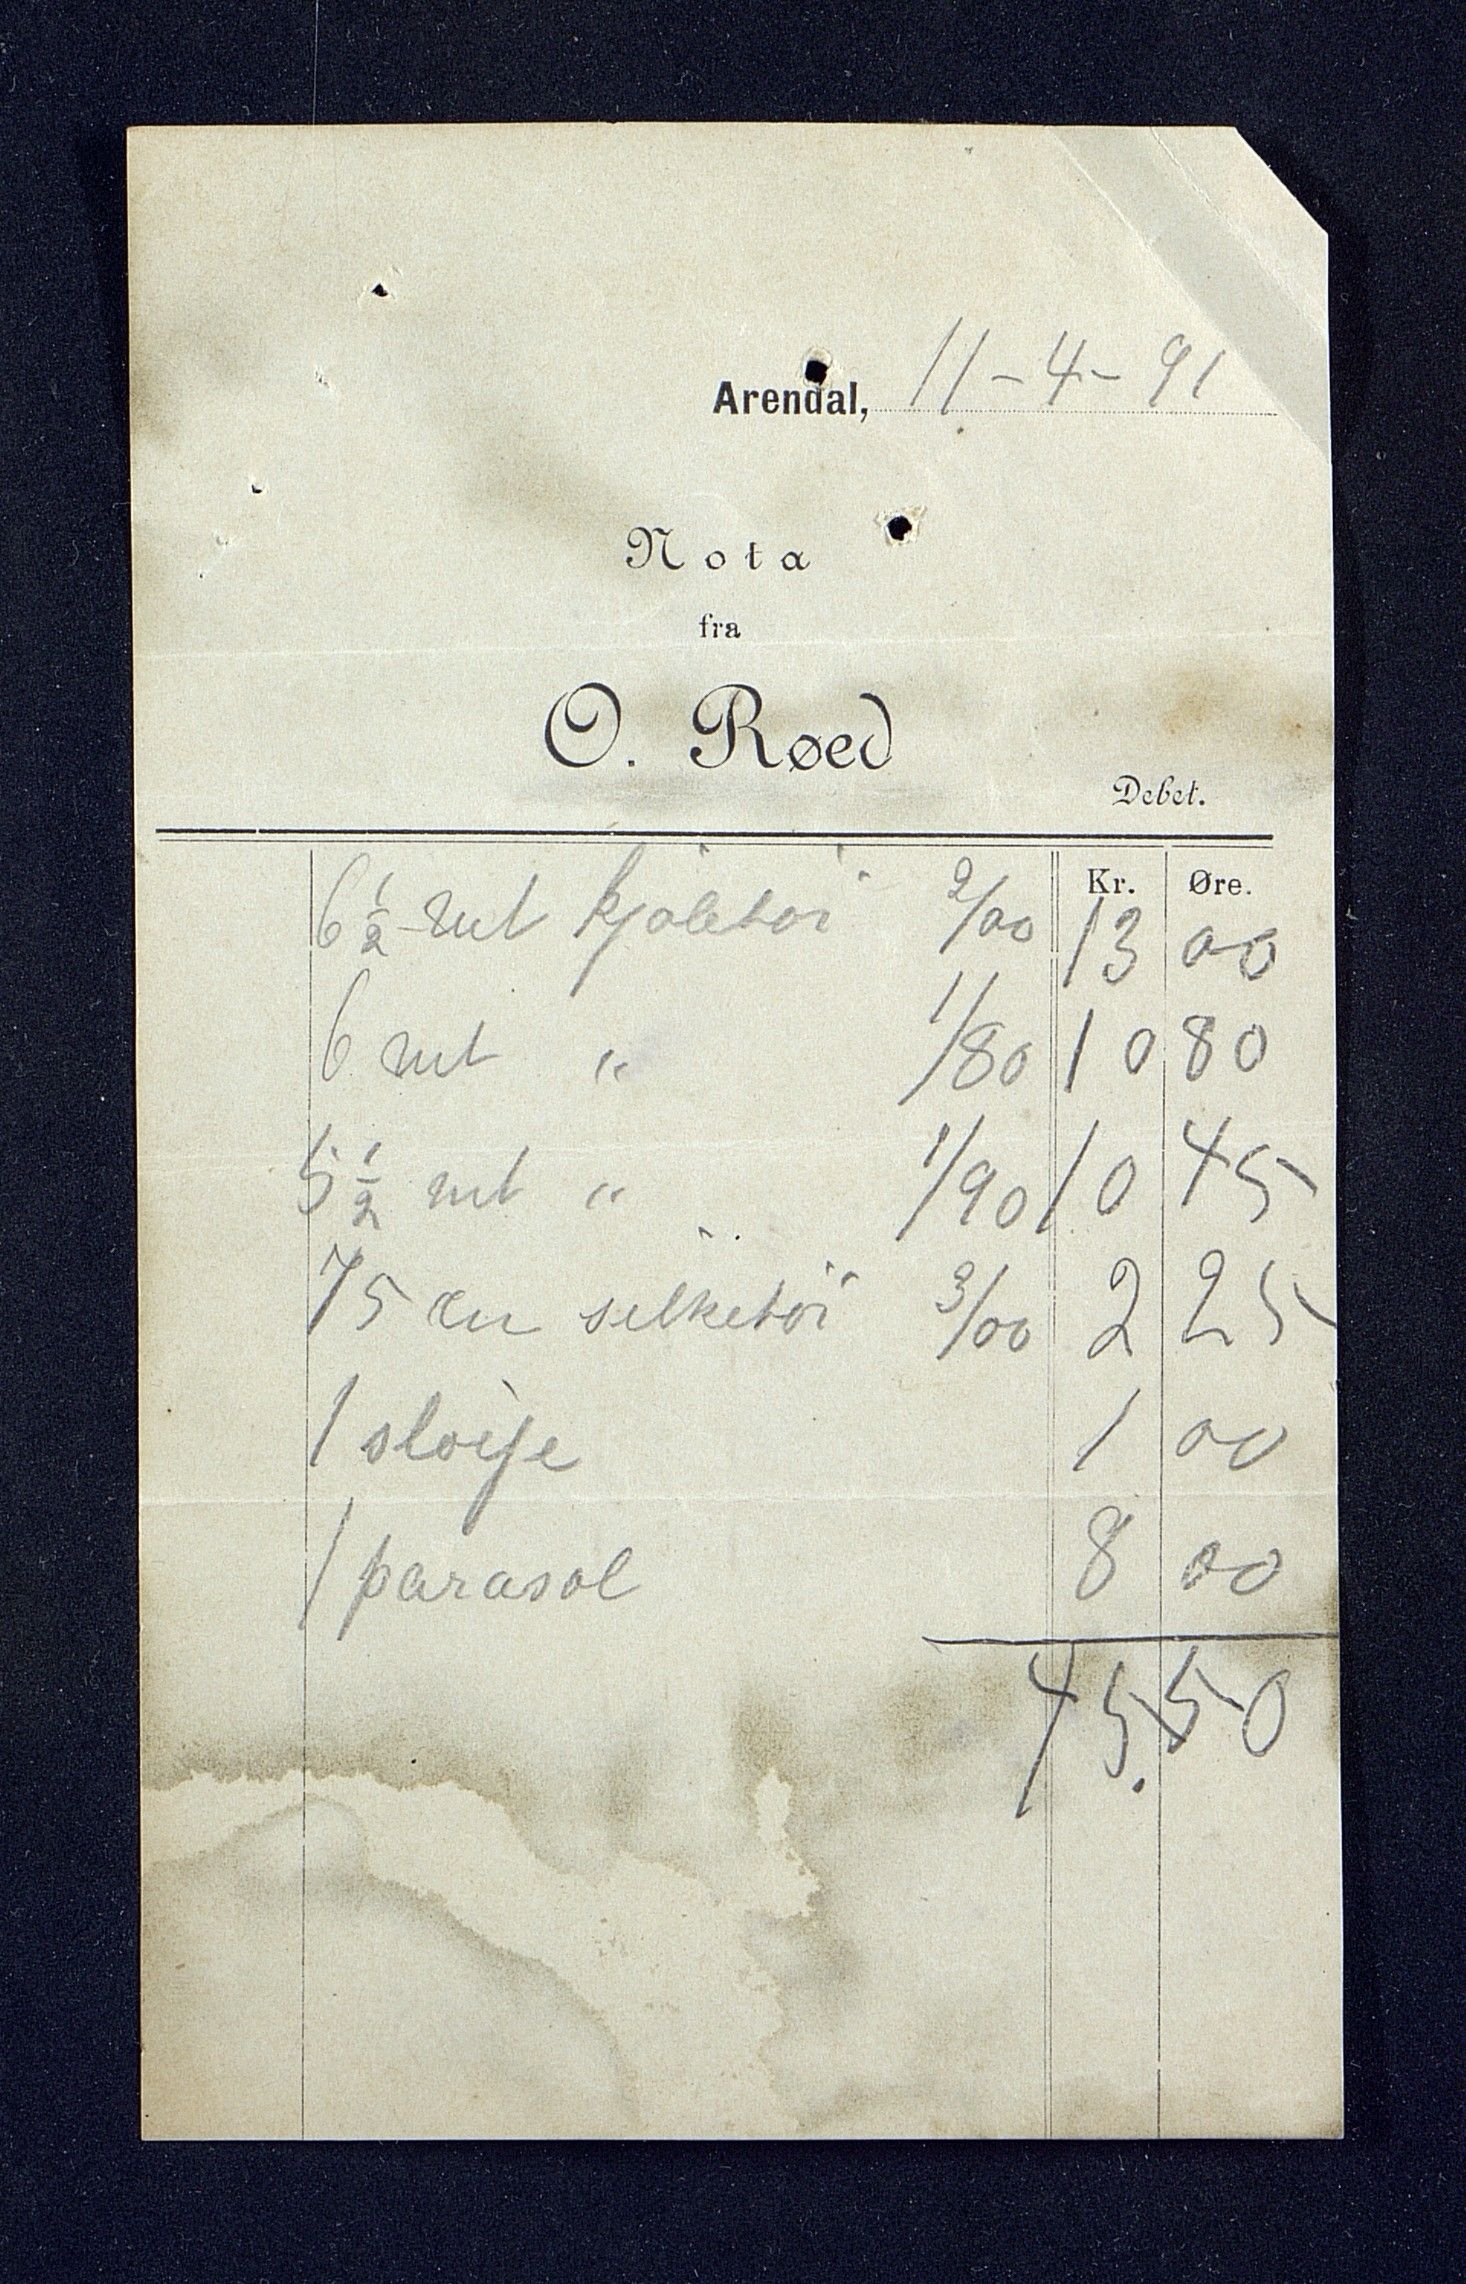 Arendal, 11-4-91
Nota
fra
O. Røed
Debet.
Kr. Øre.
6 1/2 mt kjöletöi 2/00 13 00
6 mt " 1/80 10 80
5 1/2 mt " 1/90 10 45
75 cm silketöi 3/00 2 25
1 slöife 1 00
1 parasol 8 00
45.50